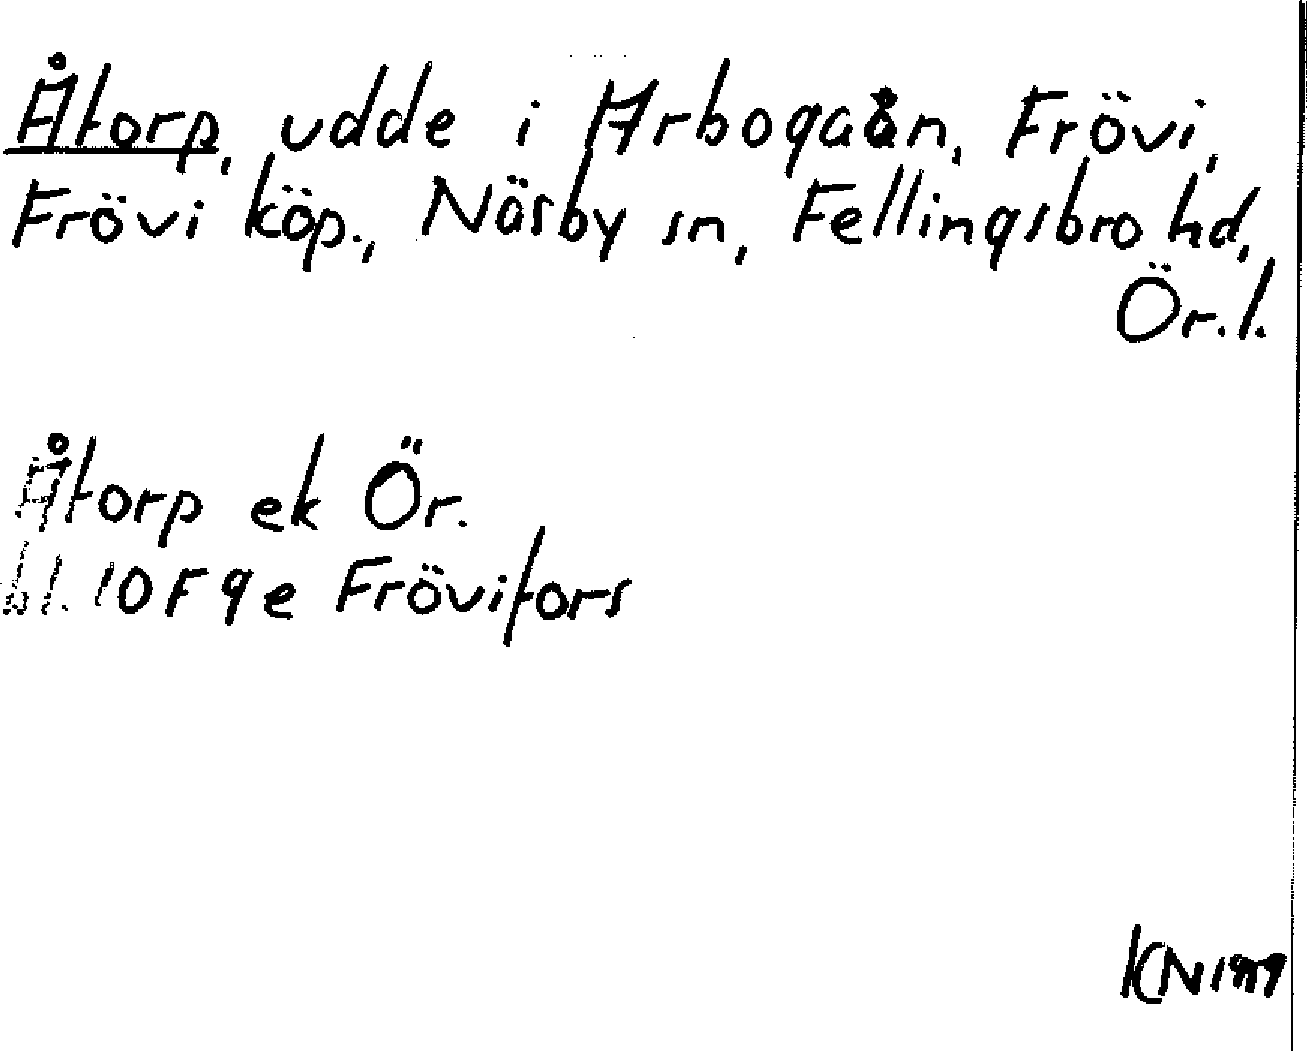 Åtorp, udde i Arbogaån, Frövi,
Frövi köp., Näsby sn, Fellingsbro hd,
Ör.l.
Åtorp ek Ör.
bl. 10F 9e Frövifors
KN